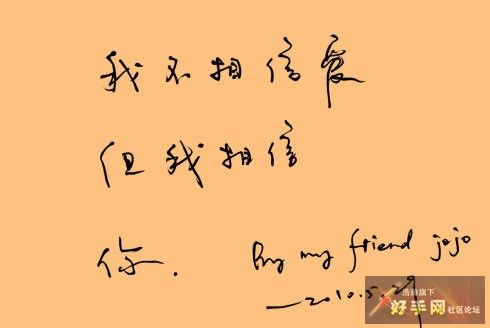 我不相信爱
但我相信
你.
By my friend jojo
—2010.5.29
浩瀚旗下
好手网社区论坛